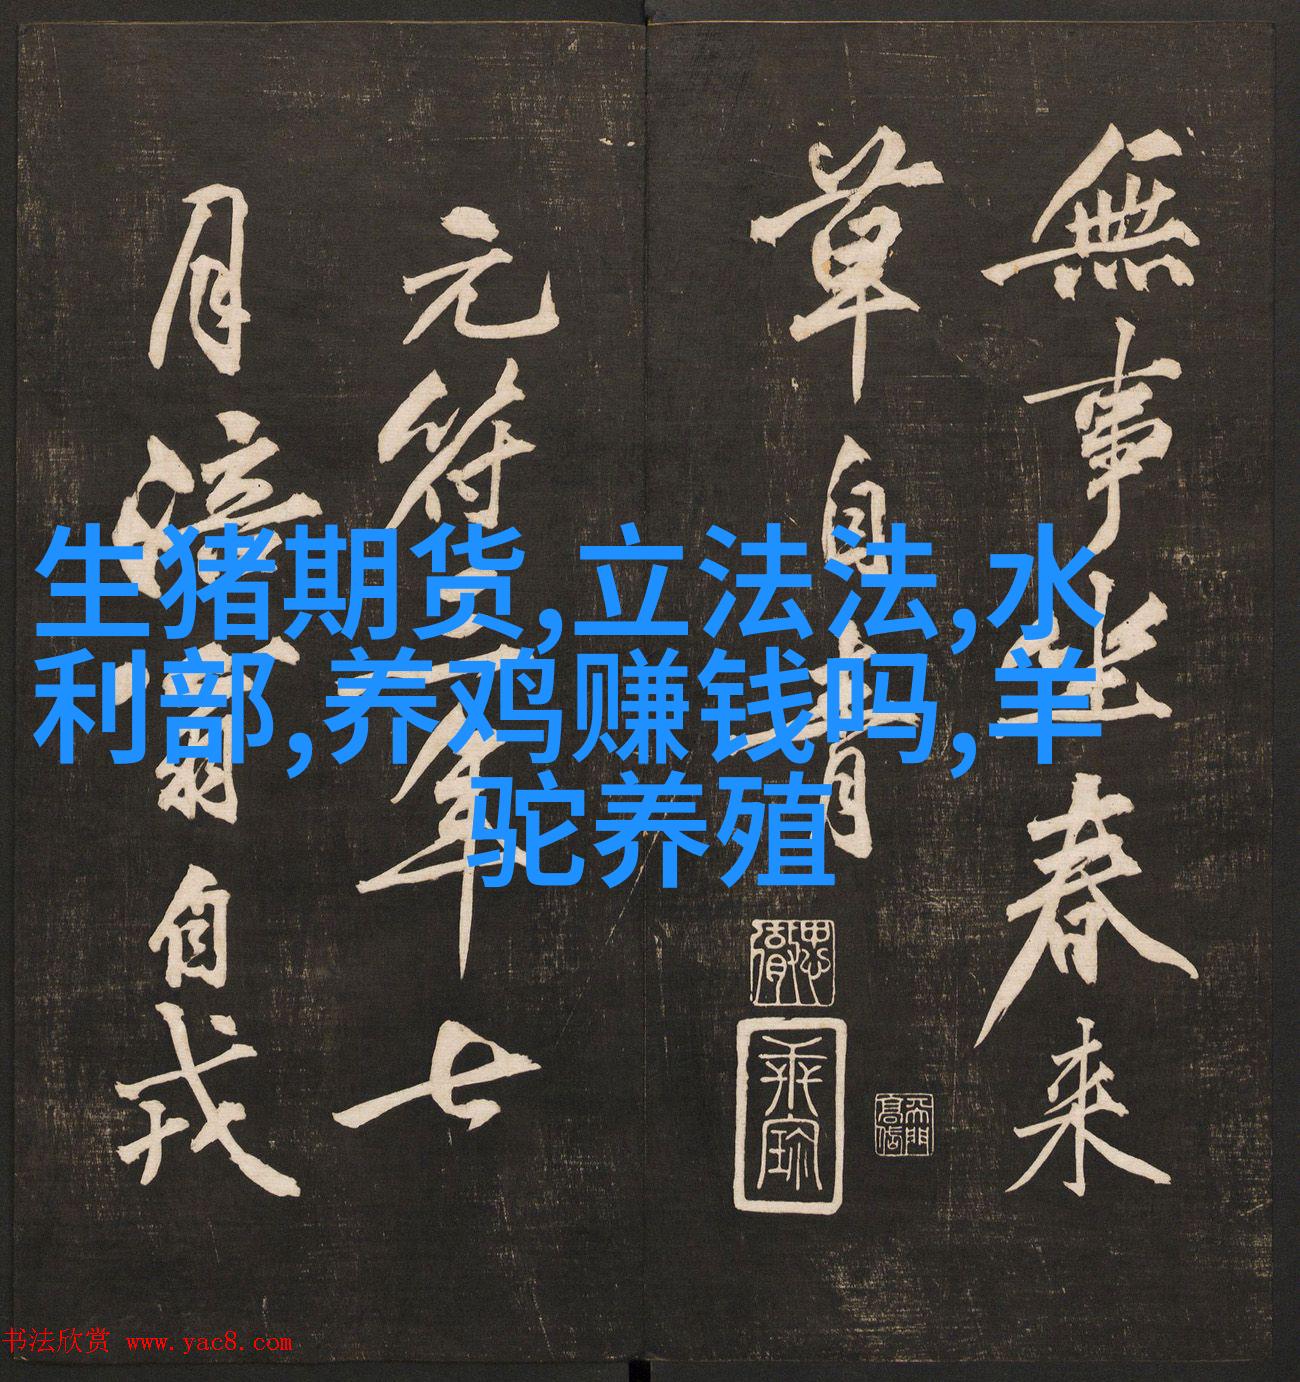 無事坐春来
草自青
元符年七
月涪翁自戎
生猪期货,立法法,水
利部,养鸡赚钱吗,羊
驼养殖
书法欣赏 www.yac8.com